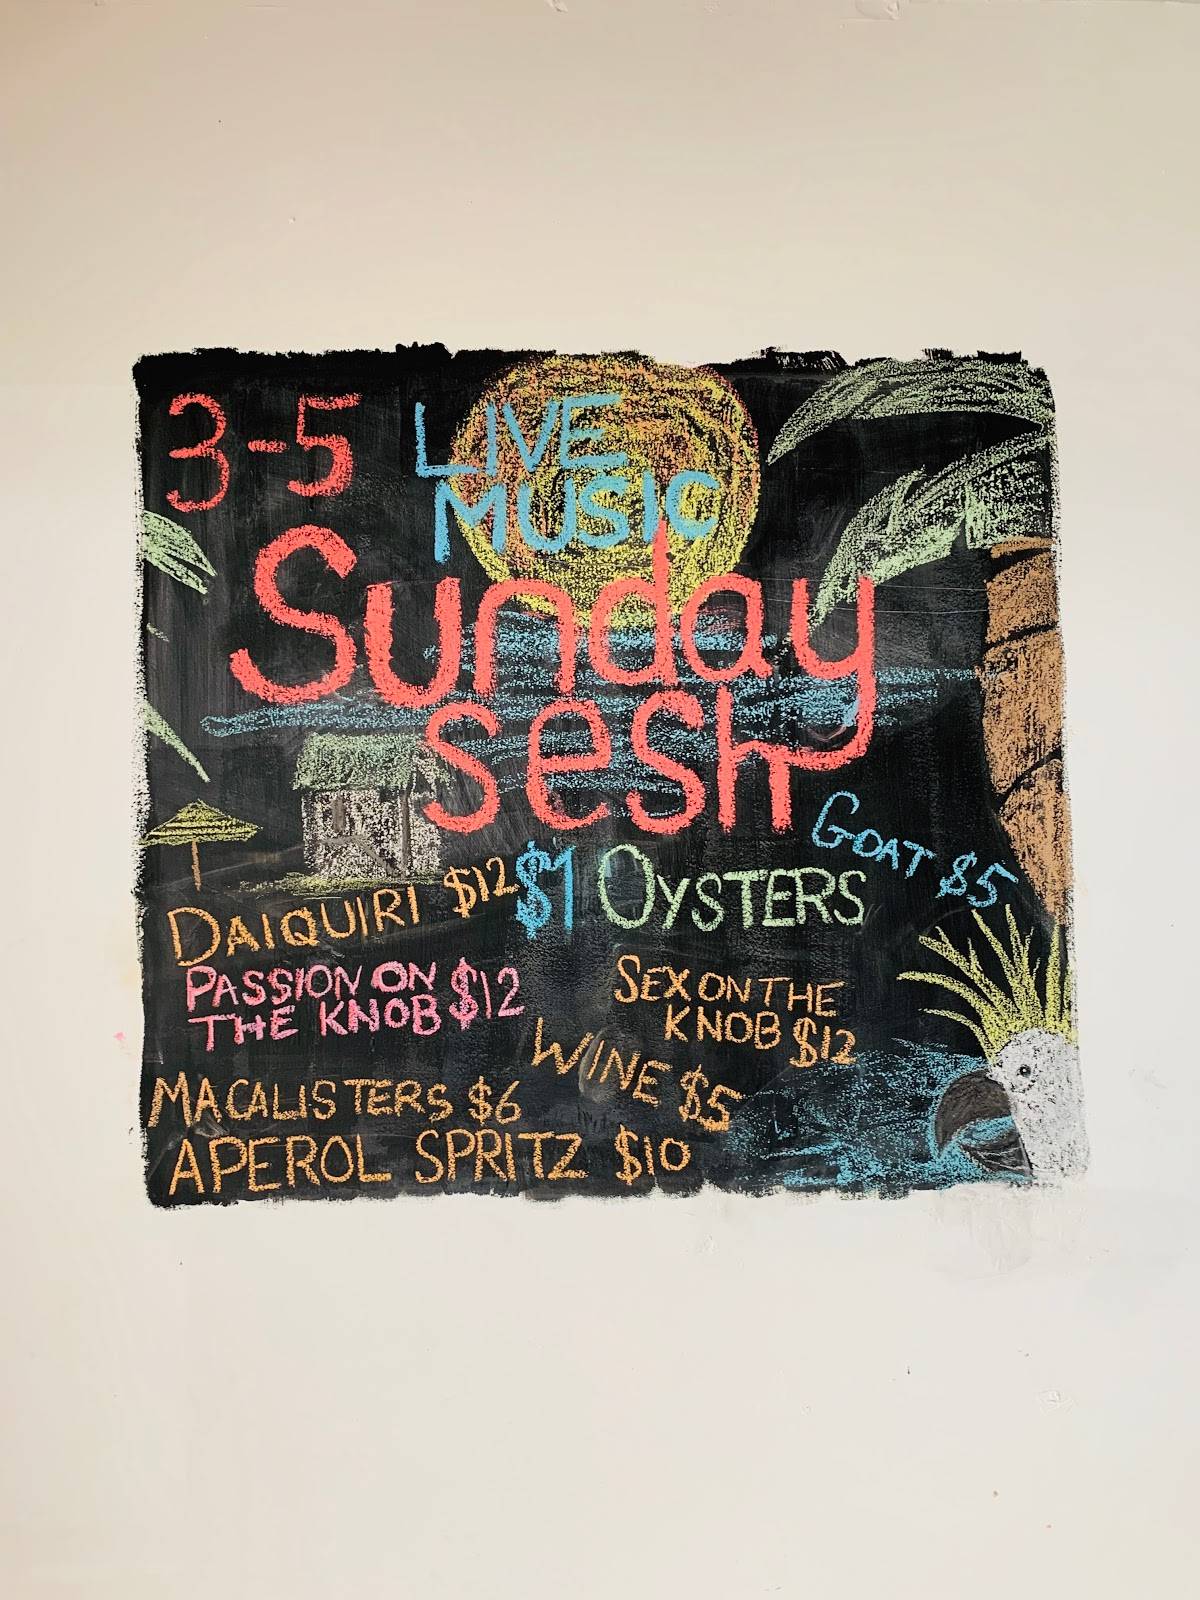 3-5
LIVE
MUSIC
Sunday
sesh
GOAT $5
DAIQUIRI $12
$1 OYSTERS
PASSION ON
THE KNOB $12
SEX ON THE
KNOB $12
WINE $5
MACALISTERS $6
APEROL SPRITZ $10